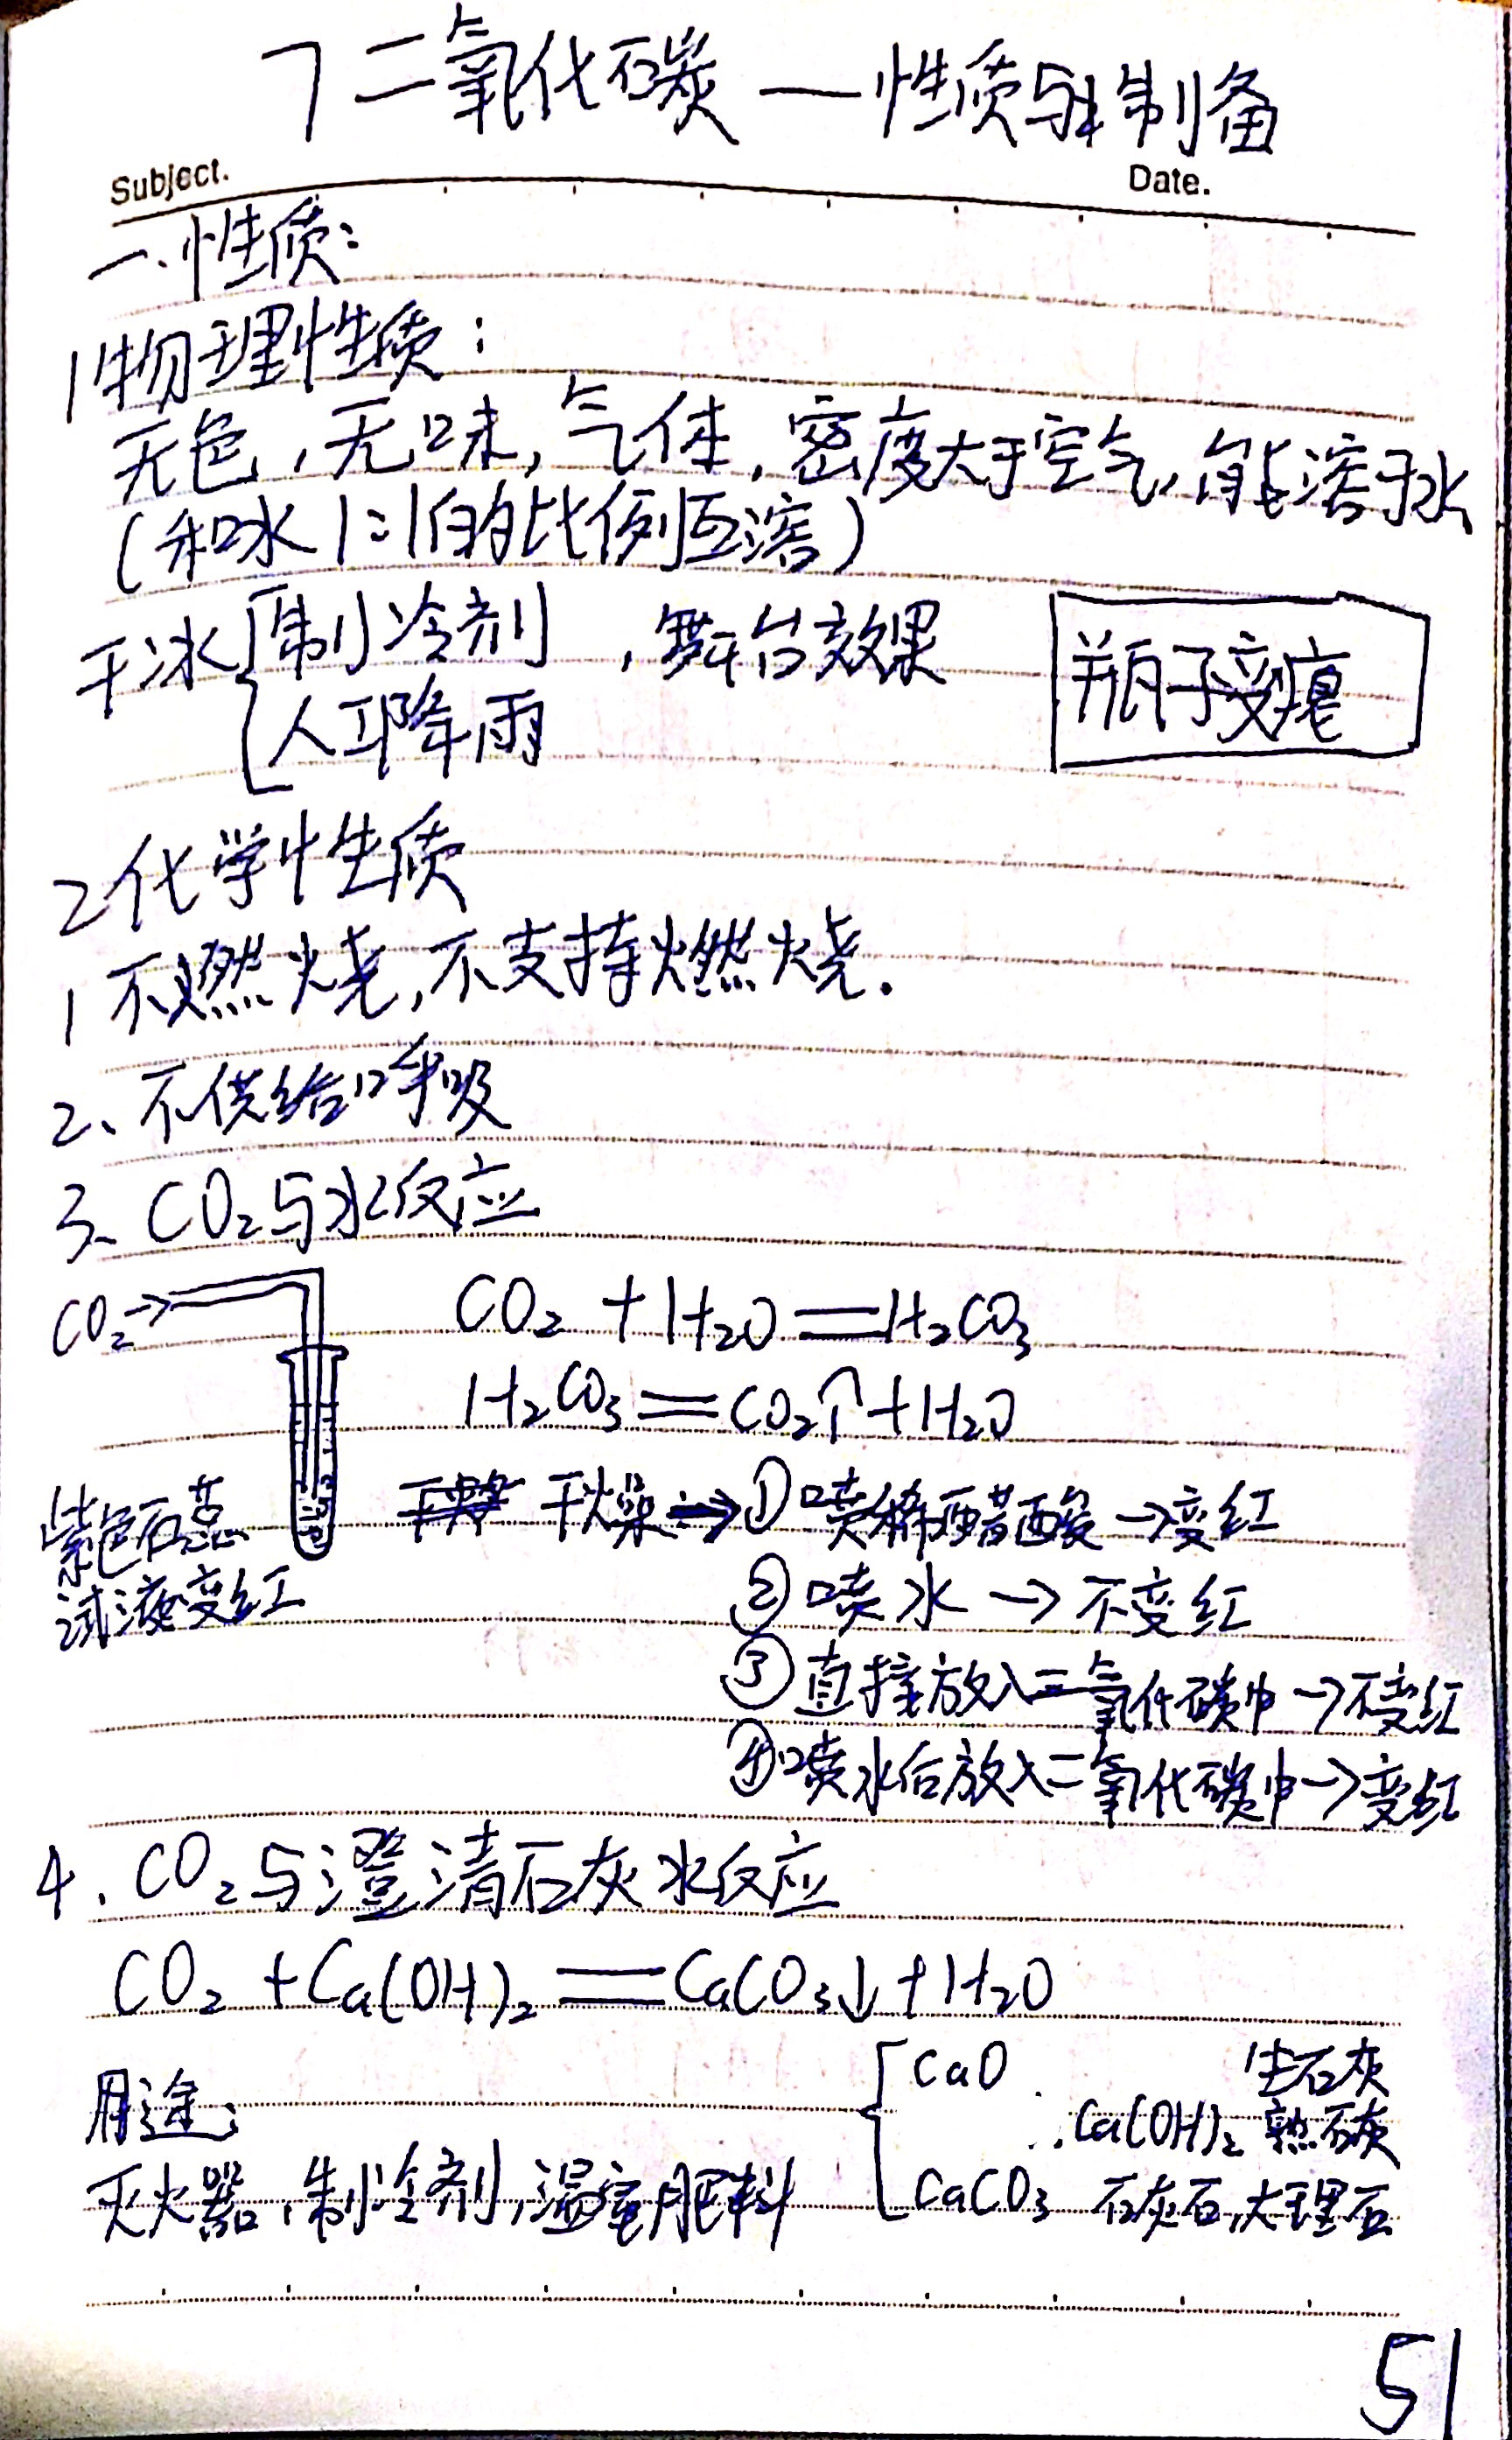 7 二氧化碳 — 性质与制备
Subject.
Date.
一、性质:
1 物理性质:
无色,无味,气体,密度大于空气,能溶于水
(和水1:1的比例互溶)
干冰 { 制冷剂 ,舞台效果
人工降雨
瓶子变瘪
2 化学性质
1 不燃烧,不支持燃烧.
2、不供给呼吸
3、CO₂与水反应
CO₂→
CO₂ + H₂O = H₂CO₃
H₂CO₃ = CO₂↑ + H₂O
紫色石蕊
试液变红
干燥 → ①喷稀醋酸 → 变红
②喷水 → 不变红
③直接放入二氧化碳中 → 不变红
④喷水后放入二氧化碳中 → 变红
4. CO₂与澄清石灰水反应
CO₂ + Ca(OH)₂ = CaCO₃↓ + H₂O
用途:
灭火器,制冷剂,温室肥料
CaO 生石灰
Ca(OH)₂ 熟石灰
CaCO₃ 石灰石,大理石
51